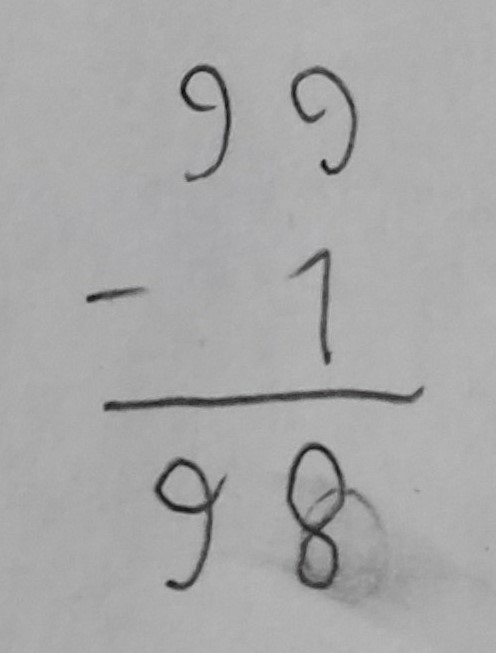 99
- 1
98